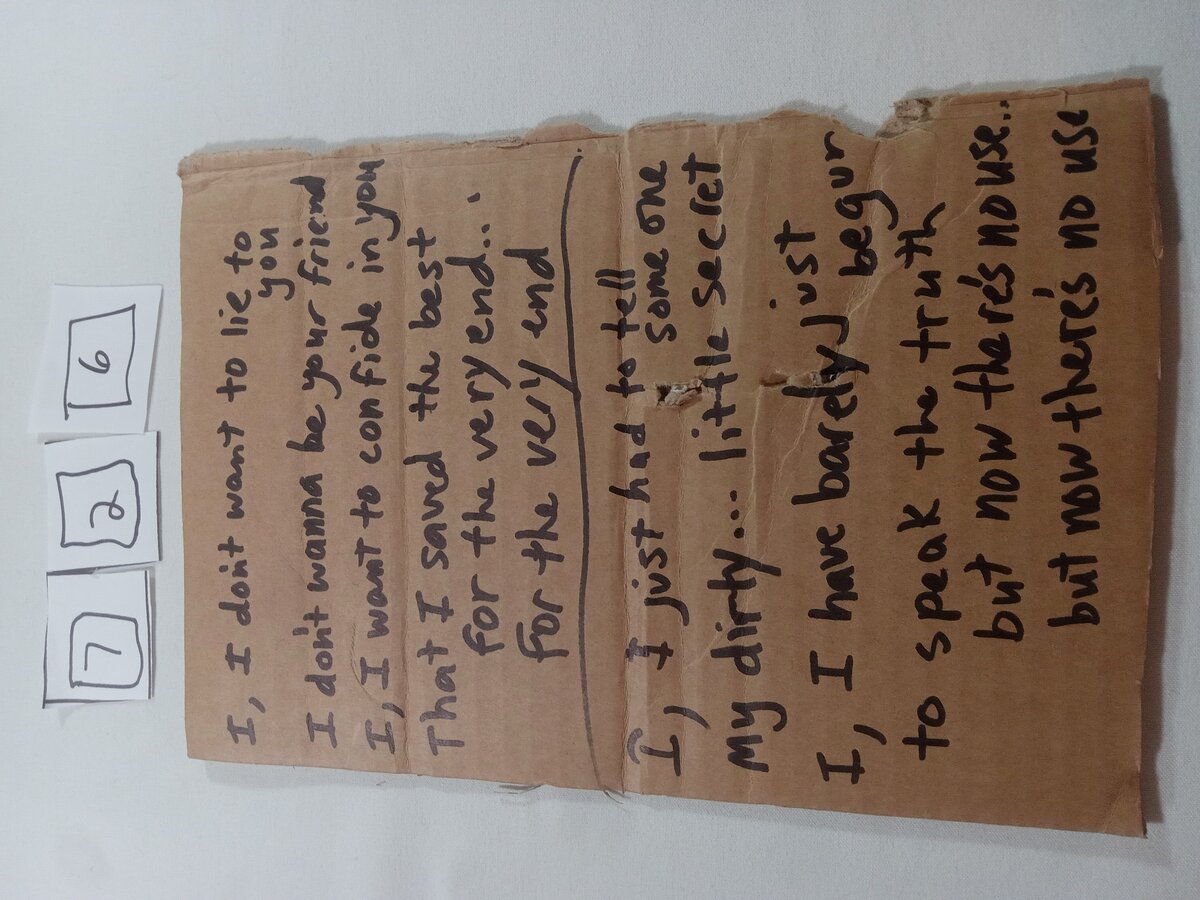 7 2 6
I, I don't want to lie to
you
I don't wanna be your friend
I, I want to confide in you
That I saved the best
for the very end...
For the very end
I, I just had to tell
some one
My dirty... little secret
I, I have barely just
begun
to speak the truth
but now there's no use..
but now there's no use